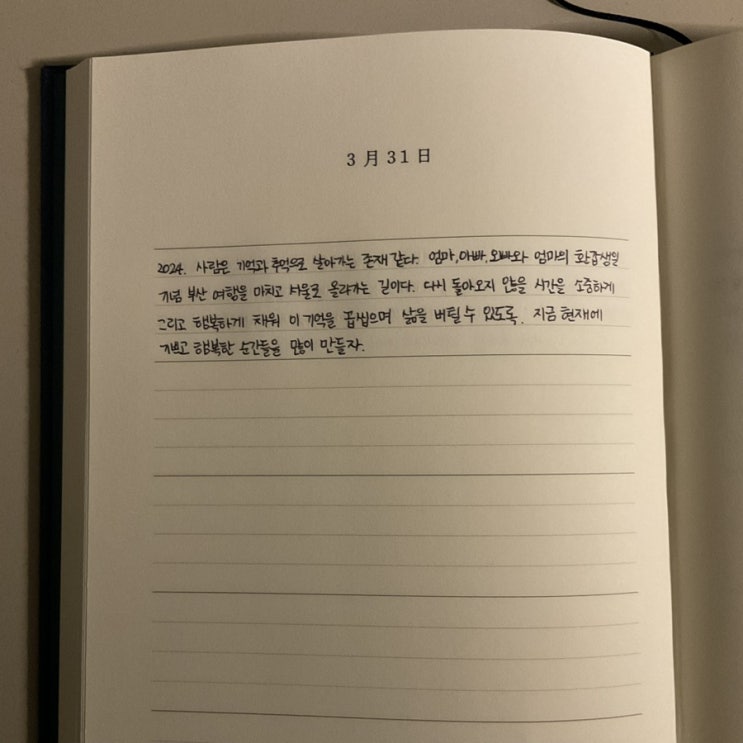 3月31日
2024. 사람은 기억과 추억으로 살아가는 존재 같다. 엄마, 아빠, 오빠와 엄마의 화갑생일
기념 부산 여행을 마치고 서울로 올라가는 길이다. 다시 돌아오지 않을 시간을 소중하게
그리고 행복하게 채워 이 기억을 곱씹으며 삶을 버틸 수 있도록. 지금 현재에
기쁘고 행복한 순간들을 많이 만들자.